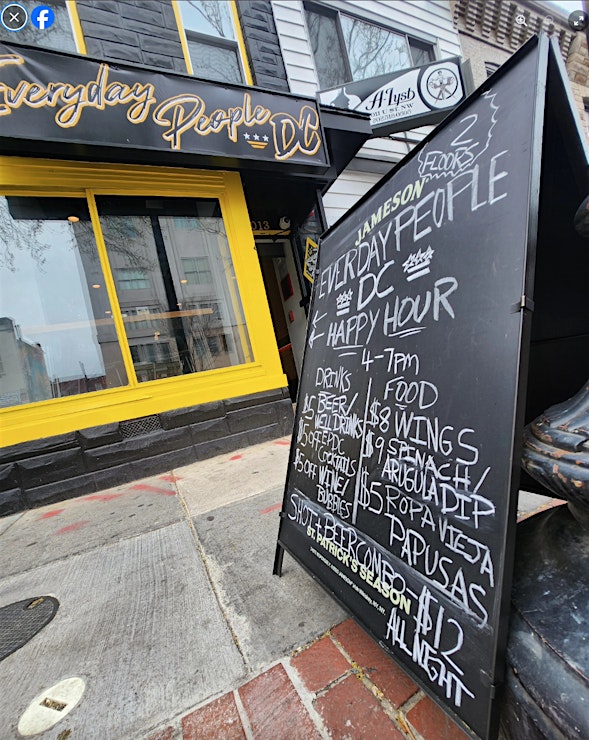 Everyday People DC
A-Lysb
U ST. NW
013
2
FLOORS
JAMESON
EVERDAY PEOPLE
DC
← HAPPY HOUR
4-7PM
DRINKS
$5 BEER/
WELL DRINKS
$5 OFF EPDC
COCKTAILS
$5 OFF WINE/
BUBBLES
FOOD
$8 WINGS
$9 SPINACH/
ARUGULA DIP
$5 ROPA VIEJA
PAPUSAS
SHOT + BEER COMBO - $12
ALL NIGHT
ST. PATRICK'S SEASON